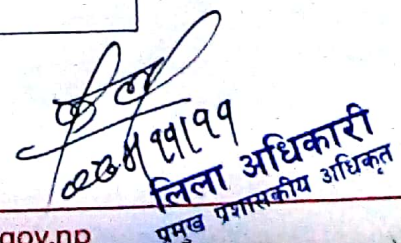 ११।११
लिला अधिकारी
प्रमुख प्रशासकीय अधिकृत
gov.np